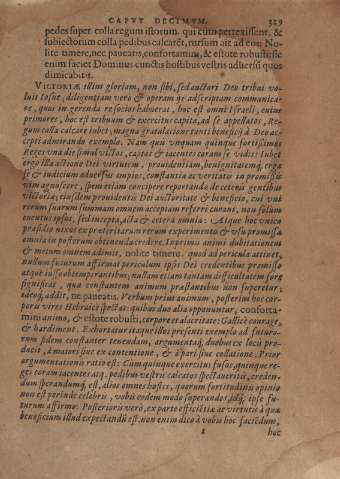 CAPVT DECIMVM. 329
pedes super colla regum istorum. qui cum perrexissent, &
subiectorum colla pedibus calcarēt, rursum ait ad eos: No-
lite timere, nec paueatis, confortamini, & estote robusti: sic
enim faciet Dominus cunctis hostibus vestris aduersū quos
dimicabitis.
VICTORIÆ illim gloriam, non sibi, sed auctori Deo tribui vo-
luit Iosue, diligentiam vero & operam ps adscriptam communica-
re, quos in gerenda re socios habuerat, hoc est omni Israeli, cuius
primores, hoc est tribuum & exercitus capita, ad se appellatos, Re-
gum colla calcare iubet, magna gratulatione tanti beneficij à Deo ac-
cepti admirando exemplo. Nam quū vnquam quinque fortissimos
Reges vna die simul victos, captos & iacentes coram se vidit? Iubet
ergo illa actione Dei virtutem, prouidentiam, benignitatemq́; erga
se & iudicium aduersus impios, constantia ac veritatis in promissis
vim agnoscere, spem etiam concipere reportandæ de ceteris gentibus
victoriæ; eiusdem prouidentis Dei auctoritate & beneficio, cui vnī
rerum suarum summam omnem acceptam referri curant, non solùm
euentus ipsos, sed incepta, acta & cetera omnia: Atque hoc vnico
præsidio nixos ex præteritarum rerum experimento & vsu promissa
omnia in posterum obtinenda credere. Inprimis animi dubitationem
& metum omnem adimit, nolite timere. quod ad pericula attinet,
nullum futurum affirmat periculum ipsis Dei credentibus promissis
atque iussis obtemperantibus; nullam etiam tantam difficultatem fore
significat, qua constantem animum præstantibus non superetur;
ideoq́; addit, ne paueatis. Verbum primum animum, posterius hoc cor-
poris vires Hebraicè spectat: quibus duo alia opponuntur, conforta-
mini animo, & estote robusti, corpore et alacritate: Gallicè courage,
& hardiment. Exhortatur itaque illos præsenti exemplo ad futuro-
rum fidem constanter tenendam, argumentaq́; duobus ex locis pro-
ducit, à maiori siue ex contentione, & à pari siue collatione. Prior
argumentationis ratio est: Cum quinque exercitus fusos, quinque re-
ges coram iacentes atq. pedibus vestris calcatos spectaueritis, creden-
dum sperandumq́; est, alios omnes hostes, quorum fortitudinis opinio
non est perinde celebris, vobis eodem modo superandos, idq́; ipse fu-
turum affirmo. Posterioris verò, ex parte efficiētis ac virtutis à quæ
beneficium illud expectandū est, non enim dico à vobis hoc faciēdum,
hoc